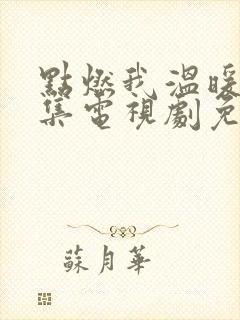 點燃我溫暖
集電視劇免
蘇月華